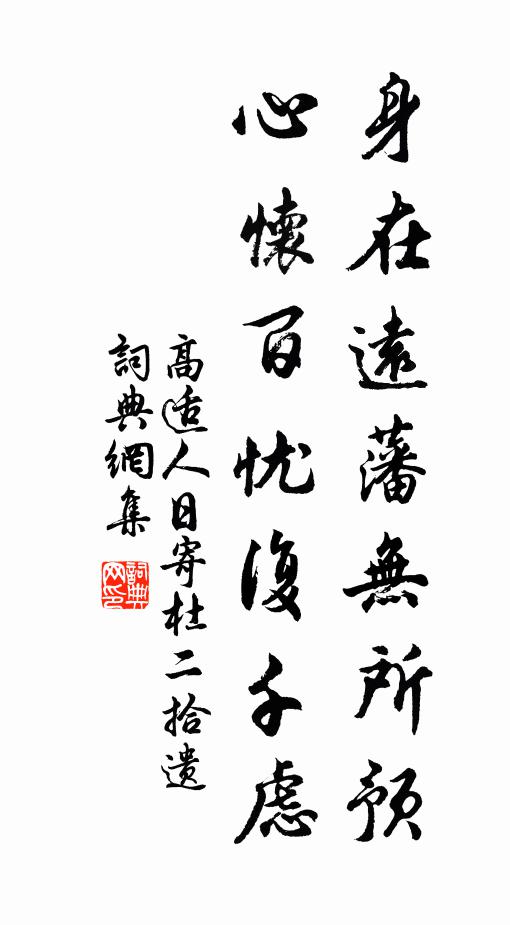 身在遠藩無所預
心懷百忧復千慮
高适人日寄杜二拾遗
詞典網集
詞典网印